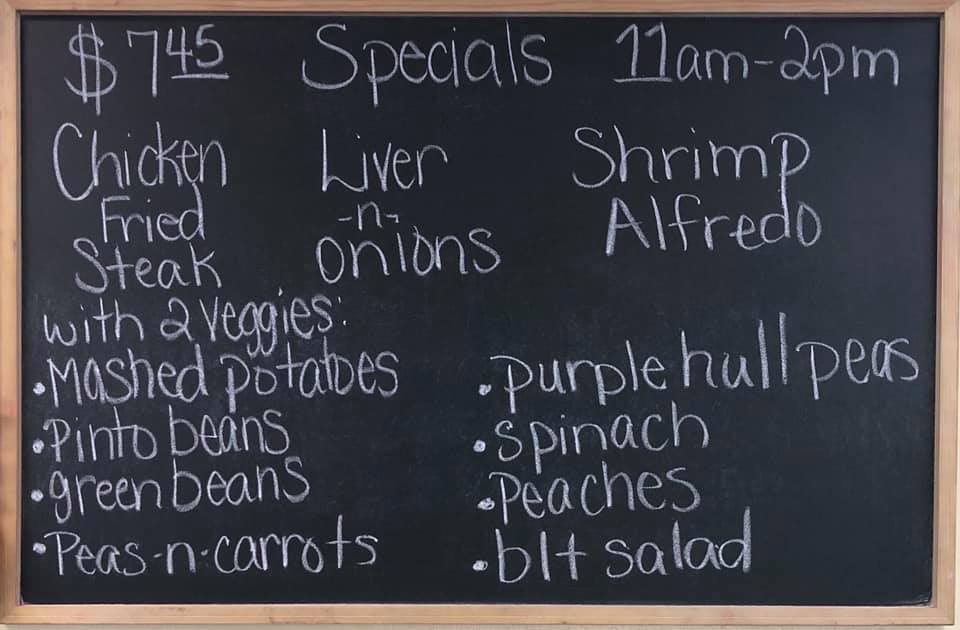 $7.45 Specials 11am-2pm
Chicken Liver Shrimp
Fried -n- Alfredo
Steak onions
with 2 veggies:
• Mashed potatoes • purple hull peas
• Pinto beans • spinach
• green beans • Peaches
• Peas-n-carrots • blt salad